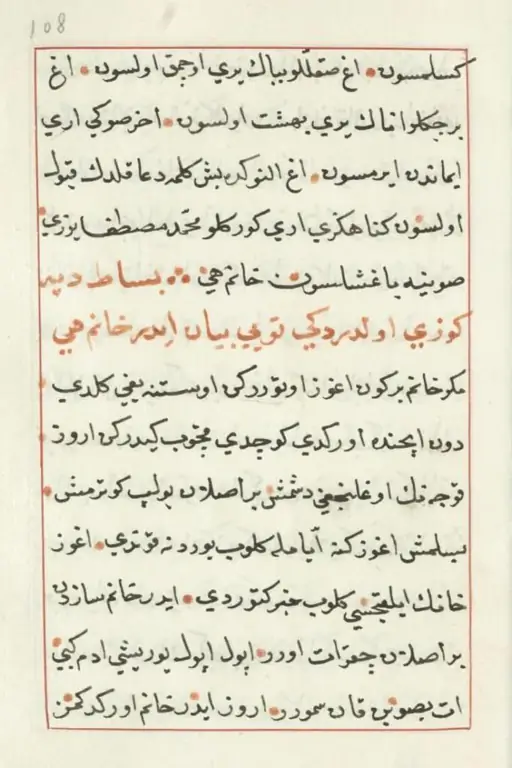 108
كسلمسون اغ صقللو بباك يري اوجمق اولسون اغ
برجكلو اناك يري بهشت اولسون اخر صوكي اري
ايماندن ايرمسون اغ النوكده بش كلمه دعا قلدك قبول
اولسون كناهكزي ادي كوركلو محمد مصطفا يوزي
صوينه باغشلسون خانم هي بساط دپه
كوزي اولدردكي بويي بيان ايدر خانم هي
مكر خانم بر كون اغوز اوتوررکن اوستنه يغي كلدي
دون ايچنده اوركدي كوچدي قچوب كيدركن اروز
قوجه نك اوغلنجغي دشمش بر اصلان بولب كوترمش
بسلمش اغوز كنه اياملا كلوب يوردنه قوندي اغوز
خانك ايلقچيسي كلوب خبر كتوردي ايدر خانم سازدن
بر اصلان چقر ات اورر اپول اپول يوريشي ادم كبي
ات بصوبن قان سمورر اروز ايدر خانم اوركدكمزن